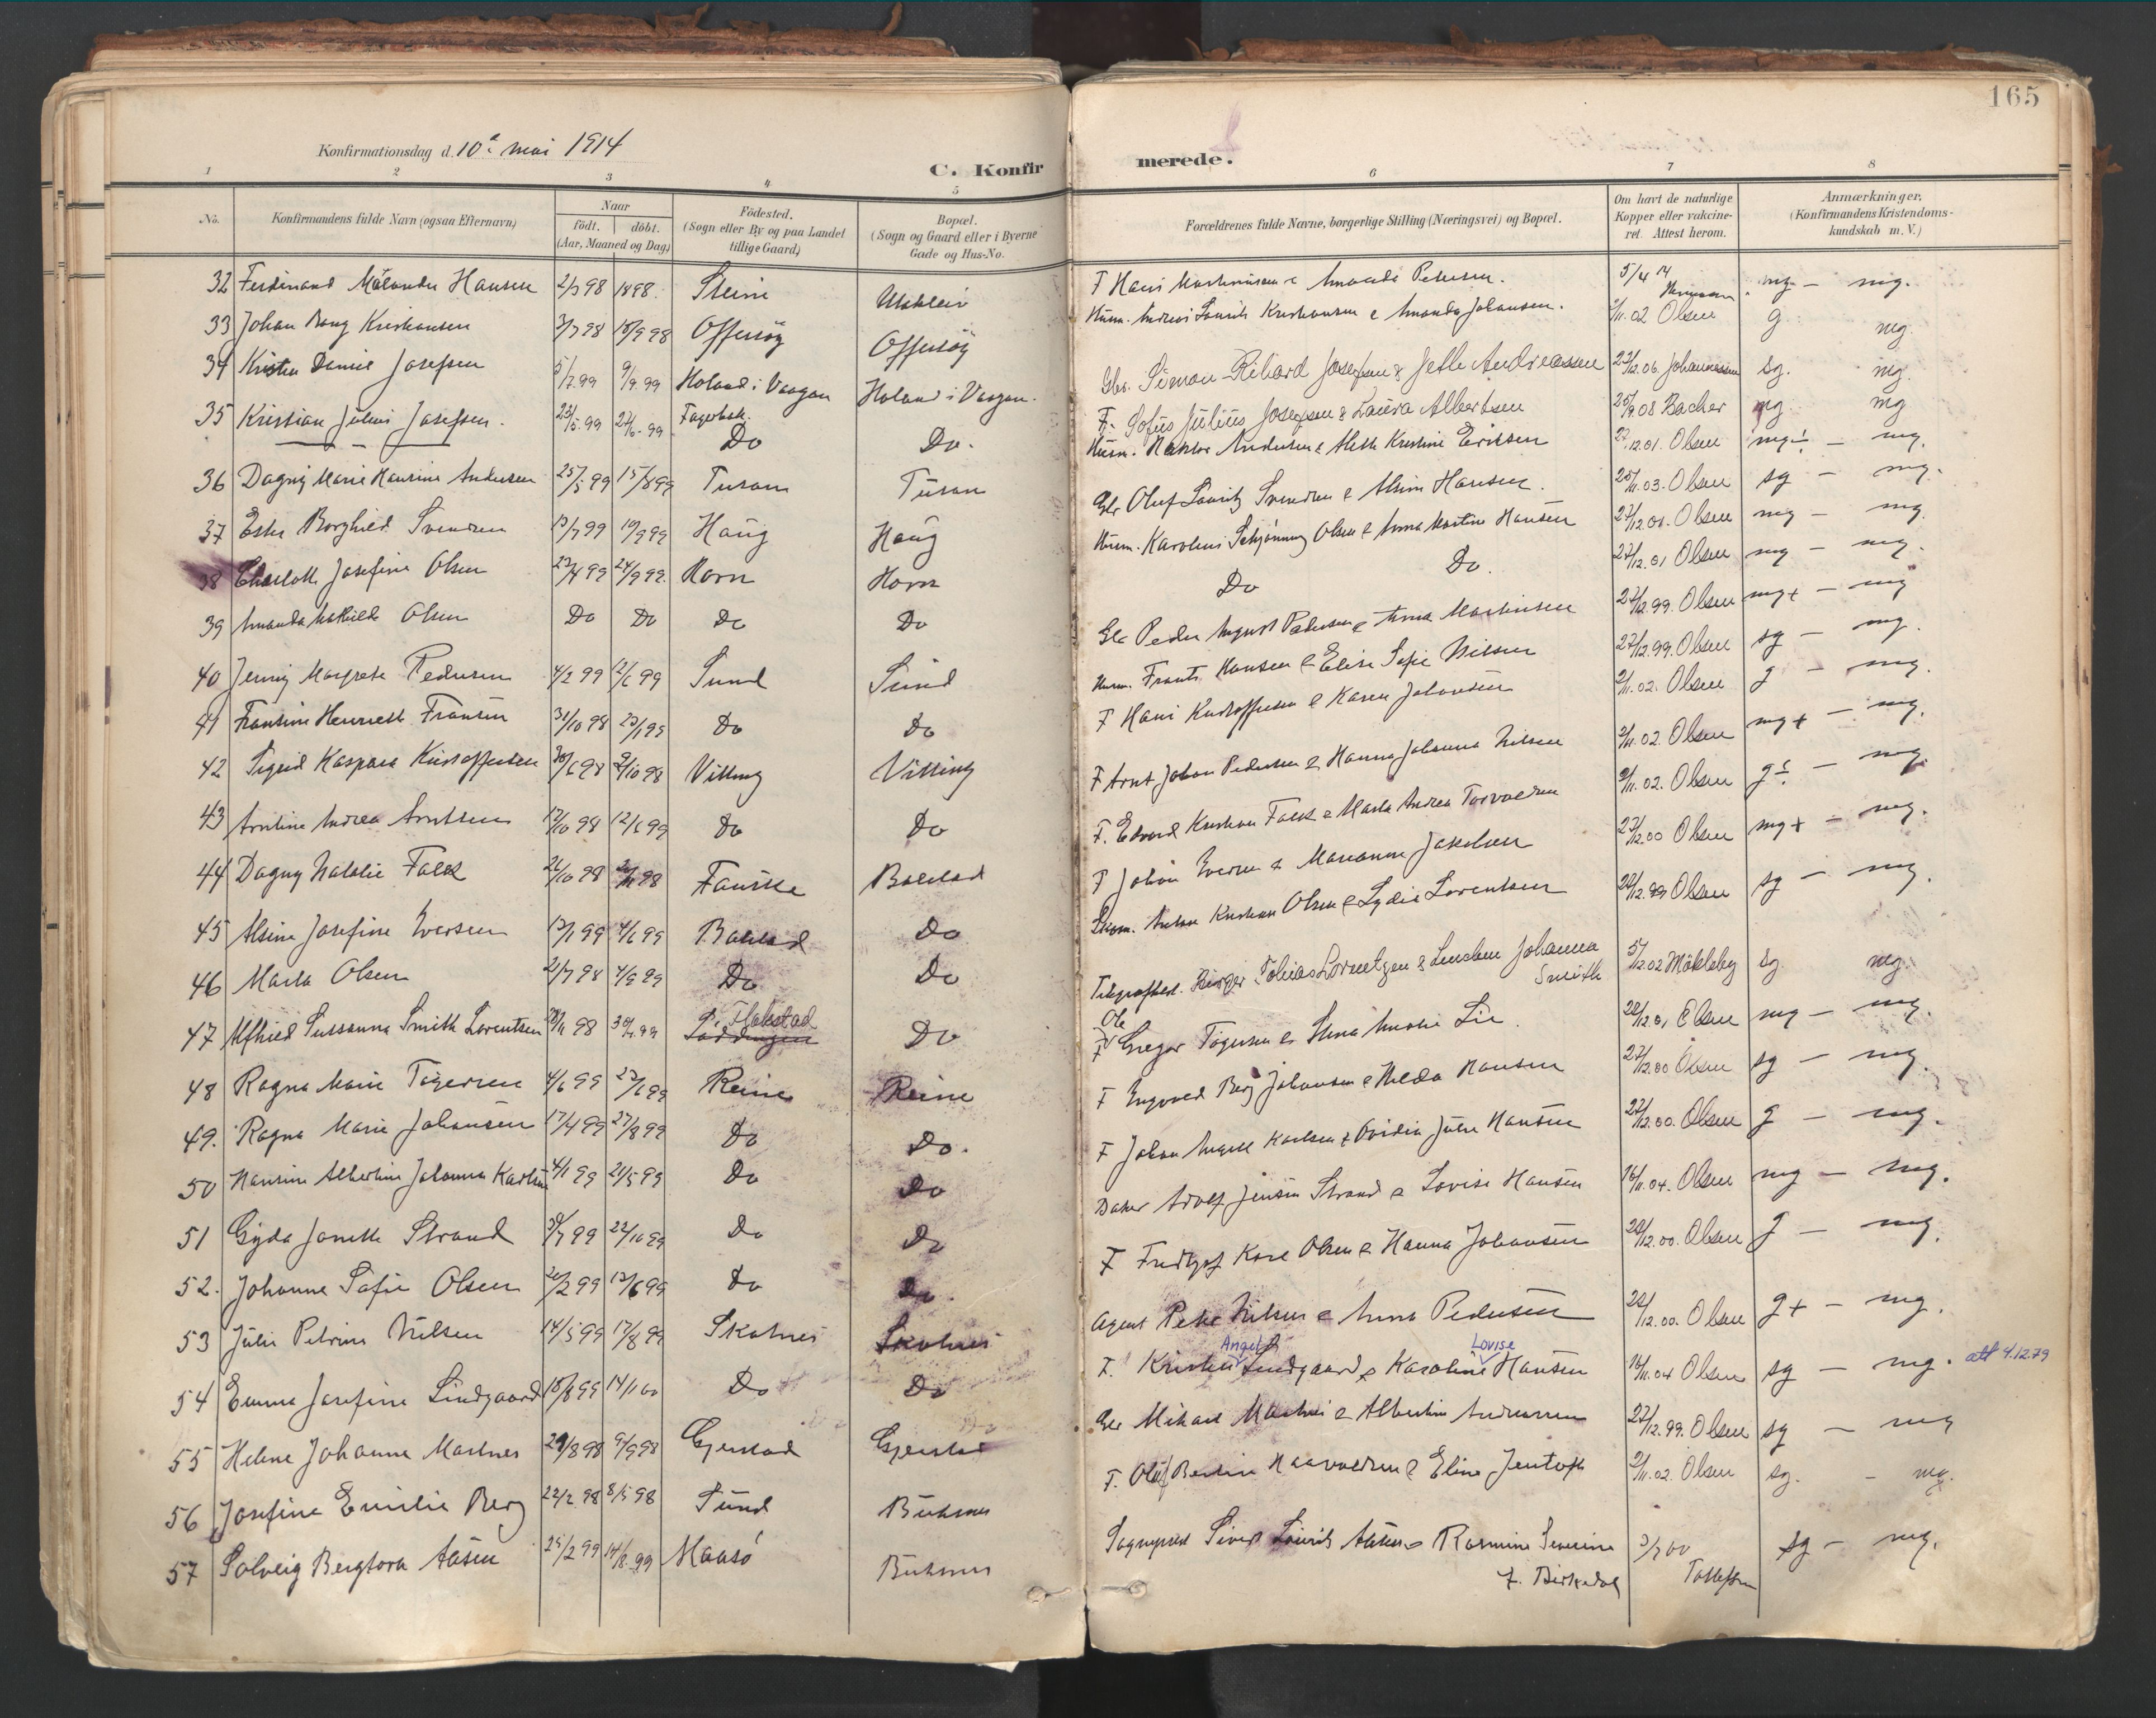 165
Konfirmationsdag d. 10de mai 1914
C. Konfirmerede.
1 2 3 4 5 6 7 8
No. Konfirmandens fulde Navn (ogsaa Efternavn) Naar født. døbt. (Aar, Maaned og Dag) Fødested. (Sogn eller By og paa Landet tillige Gaard) Bopæl. (Sogn og Gaard eller i Byerne Gade og Hus-No. Forældrenes fulde Navne, borgerlige Stilling (Næringsvei) og Bopæl. Om havt de naturlige Kopper eller vakcineret. Attest herom. Anmærkninger, (Konfirmandens Kristendomskundskab m. V.)
32 Ferdinand Hansen 2/3 98 Steine F Hans Amanda Pedersen. 5/4 14 mg - mg.
33 Johan Bang Kristiansen 3/7 98 18/9 98 Offersøy Offersøy Husm. Andreas Laurits Kristiansen & Amanda Johansen. 2/11.02 Olsen g mg.
34 Kristen Daniel Josefsen 5/7.99 9/9.99 Holand i Vaagan Holand i Vaagan. Gbr. Simon Rikard Josefsen & Jette Andreassen 27/12.06. Johannessen sg. mg.
35 Kristian Julius Josefsen. 23/5.99 Do Do. F. Sofus Julius Josefsen & Laura Albertsen 25/9.08 Backer mg. mg
36 Dagny Marie Hansine Andersen 25/5 99 15/8 99 Tusan Tusan Husm. Andersen & Kristine Eriksen 27.12.01. Olsen mg÷ - mg.
37 Ester Borghild Svendsen 13/7 99 10/9 99 Haug Haug Gbr Oluf Lauritz Svendsen & Hansen. 25/11.03. Olsen sg - mg.
38 Charlotte Josefine Olsen 23/4 99 24/9 99. Horn Horn Husm. Karolius Schjønning Olsen & Anna Martine Hansen 27/12.01. Olsen mg - mg.
39 Amanda Mathilde Olsen Do Do Do Do Do Do. 27/12.01 Olsen mg - mg.
40 Jenny Margrete Pedersen 4/2 99 Sund Sund Gbr Peder August Pedersen & Anna Martinsen 27/12.99. Olsen mg+ - mg
41 Fransine Henriette Fransen 31/10 98 Do Do Husm. Frants Hansen & Elise Sofie Nilsen 27/12.99. Olsen sg - mg.
42 Sigrid Kaspara Kristoffersen 30/6 98 9/10 98 Vitting Vitting F Hans Kristoffersen & Karen Johansen 2/11.02. Olsen g - mg.
43 Arntine Andrea Arntsen 12/10 98 12/6 99 Do Do F Arnt Johan Pedersen & Hanna Johanna Nilsen 2/11.02. Olsen mg+ - mg.
44 Dagny Natalie Falck 98 98 Fauske Balstad F. Edvard Kristian Falck & Marta Andrea Torvaldsen 2/11.02. Olsen g÷ - mg.
45 Alsine Josefine Iversen 13/1 99 4/6 99 Balstad Do F Johan Iversen & Marianne Jakobsen 27/12.00 Olsen mg+ - mg.
46 Marta Olsen 21/7 98 Do Do Anton Kristian Olsen & Lydia Lorentsen 28/12.99 Olsen sg - mg.
47 Alfhild Sussanna Smith Lorentsen 98 99 Flakstad Do Telegrafbest. Birger Tobias Lorentzen & Lenchen Johanna Smith 5/12.02 Möklebÿ sg. mg.
48 Ragna Marie Tøgersen 4/6 99 Reine Reine F Ole Gregar Tøgersen & Stina Amalie Lie. 28/12.01 Olsen mg - mg.
49. Ragna Marie Johansen 17/4 99 27/8 99 Do Do. F Ingvald Berg Johansen & Helda Hansen 27/12.00 Olsen sg - mg.
50 Hansine Albertine Johanna Karlsen 4/1 99 21/5 99 Do Do F Johan Angell Karlsen & Ovidia Julie Hansen 27/12.00. Olsen g - mg.
51 Gyda Janette Strand 99 22/10 99 Do Do Baker Adolf Jensen Strand & Lovise Hansen 16/11.04. Olsen mg - mg.
52. Johanne Sofie Olsen 99 Do Do. F Fridtjof Karl Olsen & Hanna Johansen 28/12.00. Olsen g - mg.
53 Julie Petrine Nilsen 14/5 99 17/8 99 Skotnes Skotnes Agent Peter Nilsen & Anna Pedersen 28/12.00. Olsen g+ - mg.
54 Emma Josefine Lindgaard 18/8 99 14/1 00 Do Do F. Kristen Angel Lindgaard & Karoline Lovise Hansen 16/11.04 Olsen sg - mg. att 4.12.79
55 Helene Johanne Martnes 29/8 98 Gjerstad Gjerstad Gbr Mikael Martnes & Albertine Andreassen 27/12.99. Olsen sg - mg
56 Josefine Emilie Berg 22/2.98 8/5 98 Sund Buksnes F. Oluf Bertin Haavardsen & Eline Jentoft 2/11.02. Olsen sg. - mg.
57 Solveig Bergtora Aasen 25/2 99 Maasø Buksnes Sogneprest Sivert Laurits Aasen & Rasmine Severine f. Birkedal 3/7 00 Tollefsen sg - mg.